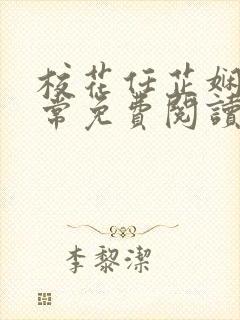 校花任芷娴
常免費閱讀
李黎潔